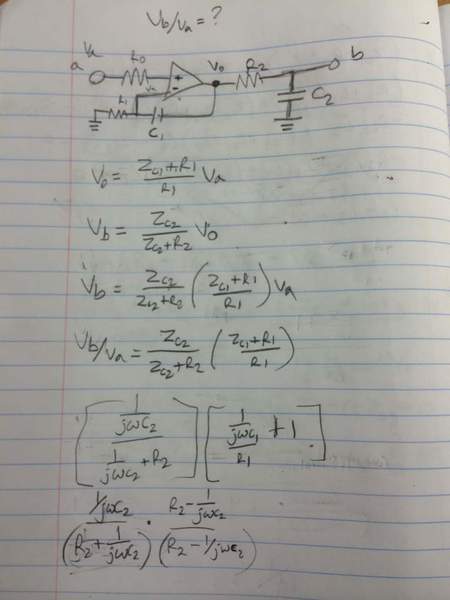 Vb/Va = ?
Va
a
R0
+
-
V0
R2
b
R1
C1
C2
V0 = (Zc1 + R1)/R1 Va
Vb = Zc2/(Zc2 + R2) V0
Vb = Zc2/(Zc2 + R2) ((Zc1 + R1)/R1) Va
Vb/Va = Zc2/(Zc2 + R2) ((Zc1 + R1)/R1)
[(1/jωC2)/(1/jωC2 + R2)] [(1/jωC1)/R1 + 1]
(1/jωC2)/(R2 + 1/jωC2) · (R2 - 1/jωC2)/(R2 - 1/jωC2)